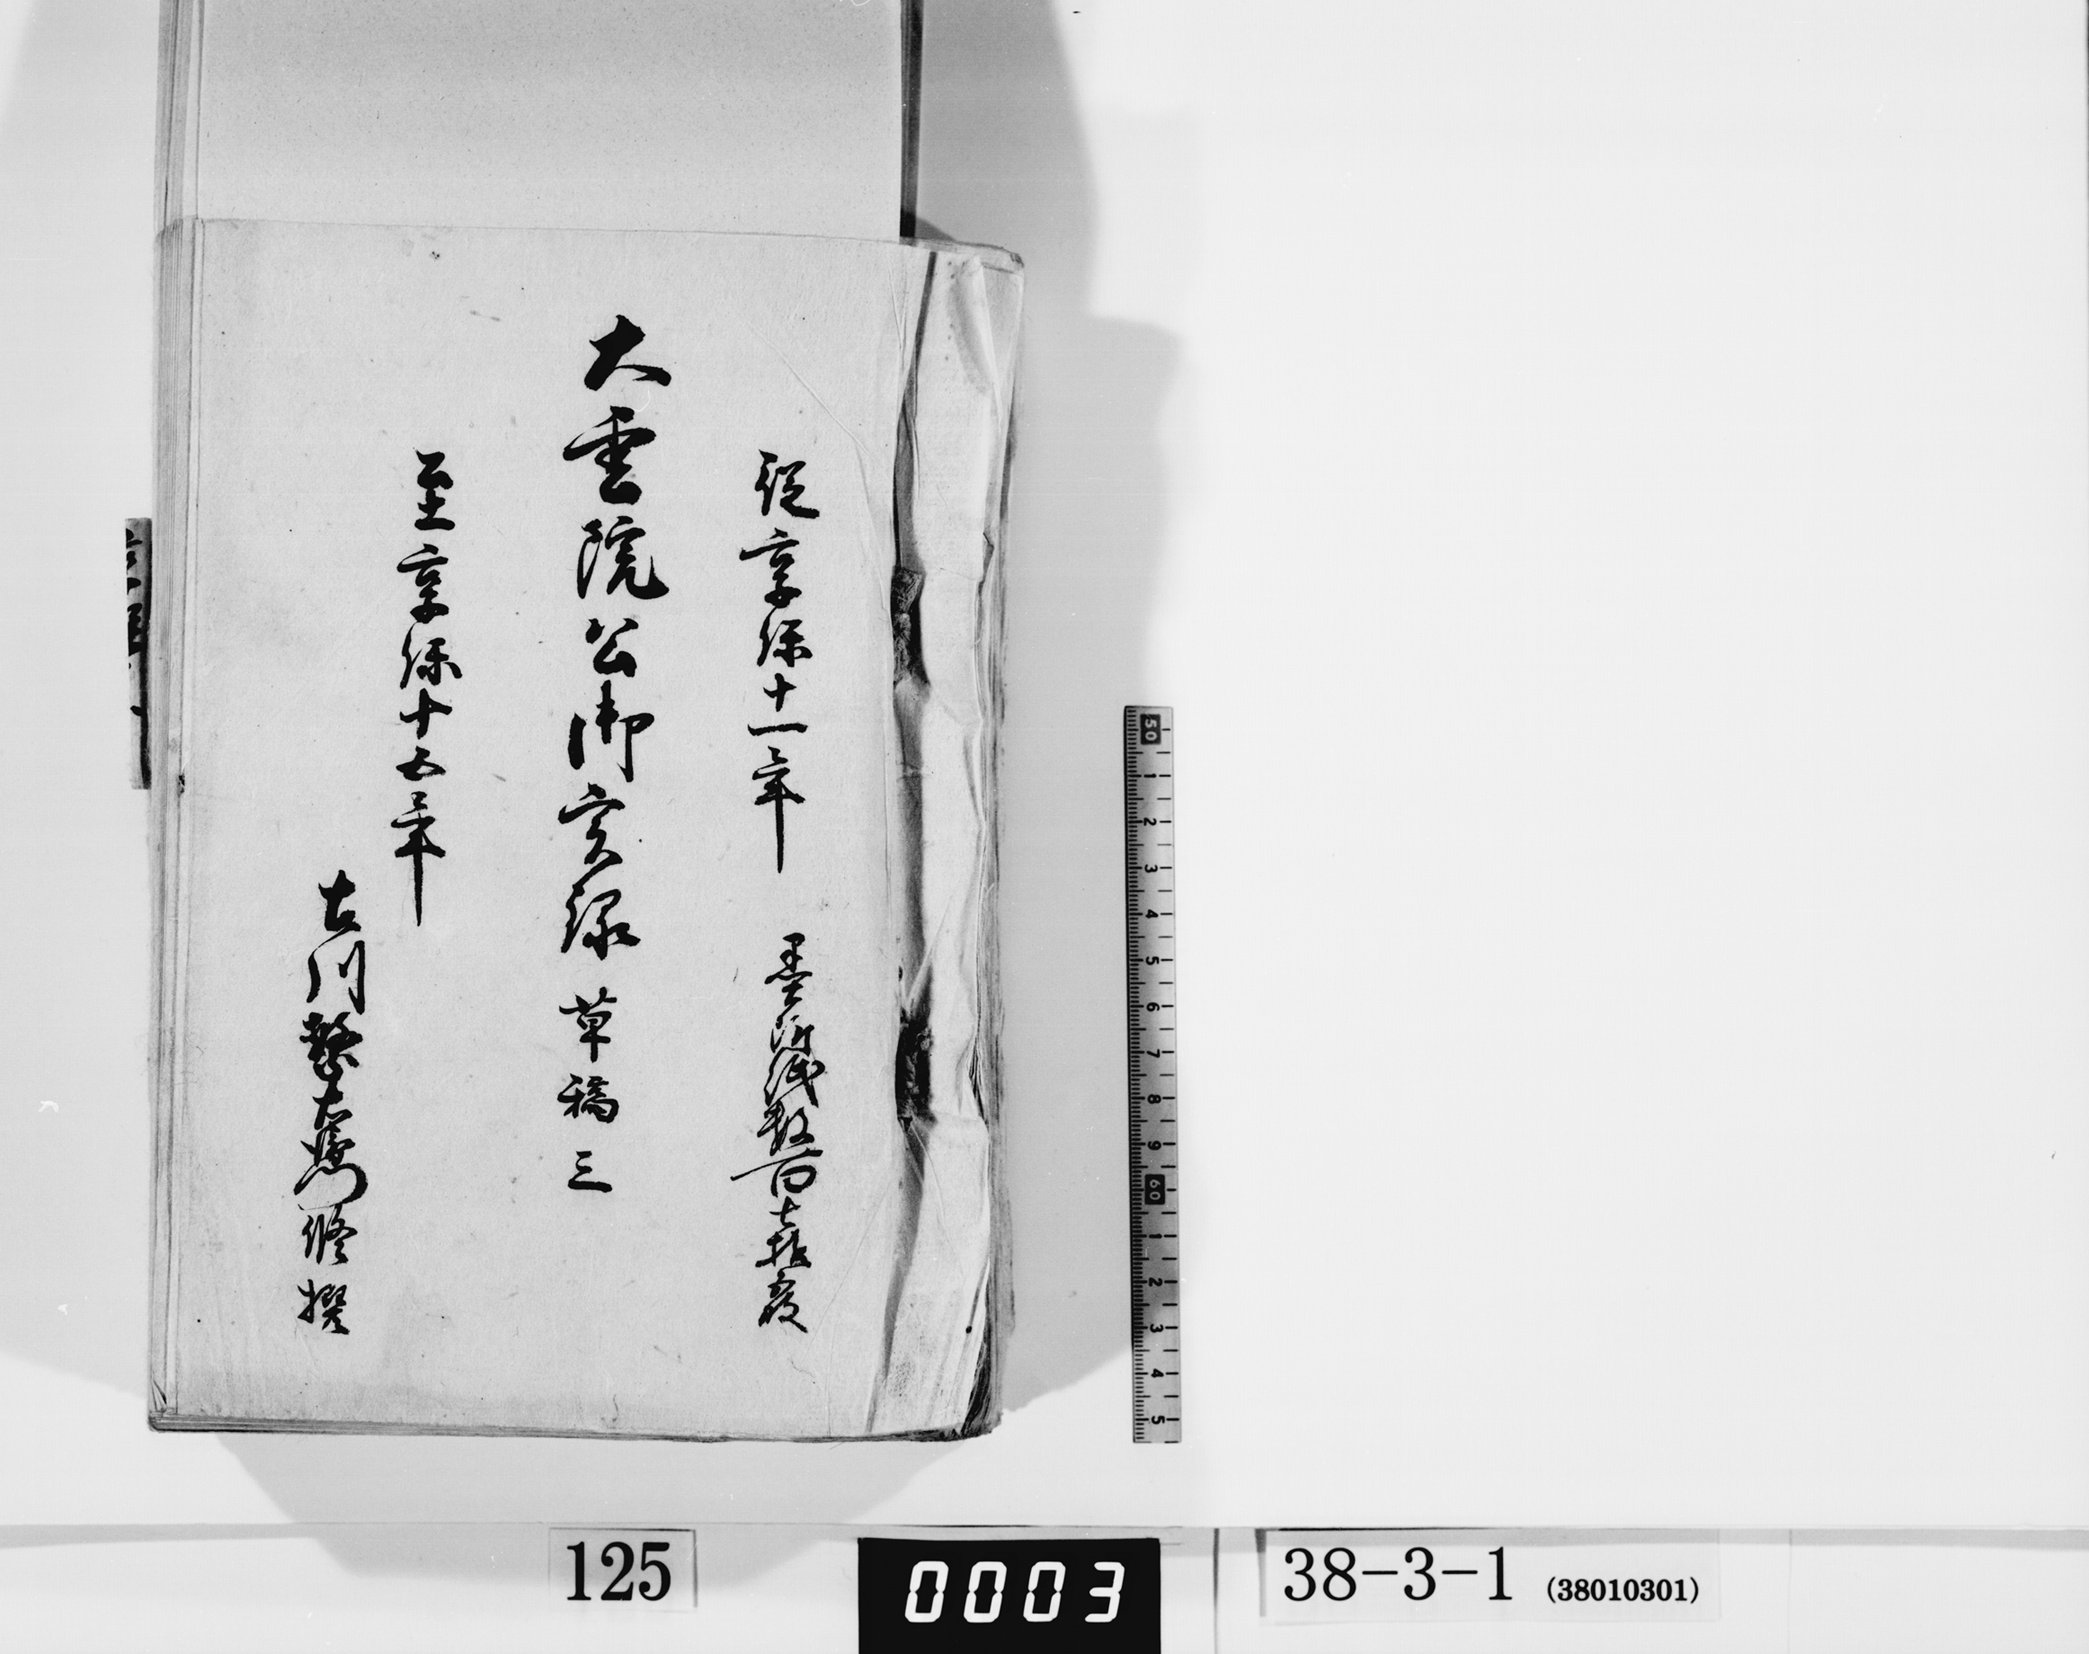 従享保十一年
墨附紙数百七拾一枚
大雲院公御実録 草稿 三
至享保十五年
古川繁右衛門修撰
50 1 2 3 4 5 6 7 8 9 60 1 2 3 4 5
125
0003
38-3-1 (38010301)